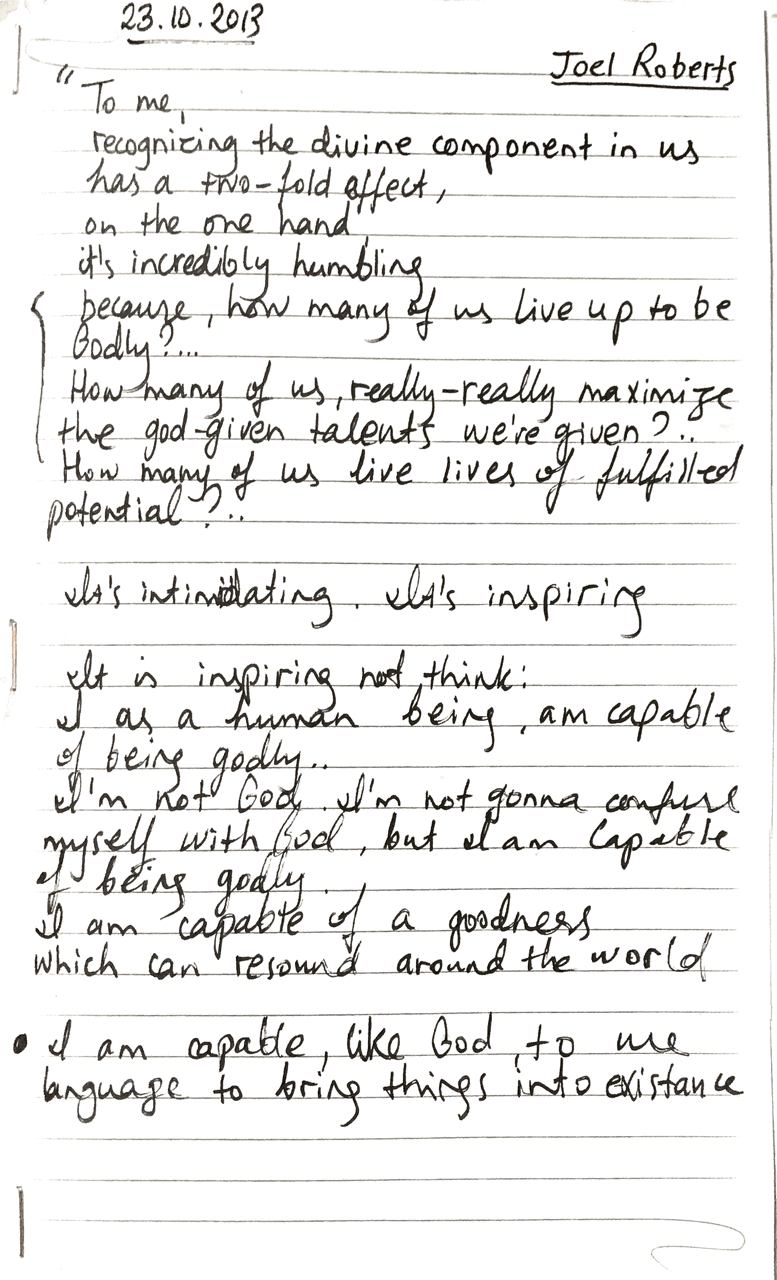 23.10.2013
Joel Roberts
"To me,
recognizing the divine component in us
has a two-fold effect,
on the one hand,
it's incredibly humbling
because, how many of us live up to be
Godly?...
How many of us, really-really maximize
the god-given talents we're given?..
How many of us live lives of fulfilled
potential?..
It's intimidating. It's inspiring
It is inspiring not think:
I as a human being, am capable
of being godly..
I'm not God. I'm not gonna confuse
myself with God, but I am capable
of being godly.
I am capable of a goodness
which can resound around the world
• I am capable, like God, to use
language to bring things into existance